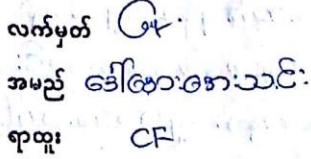 လက်မှတ်
အမည် ဒေါ်အေးအေးသင်း
ရာထူး CF